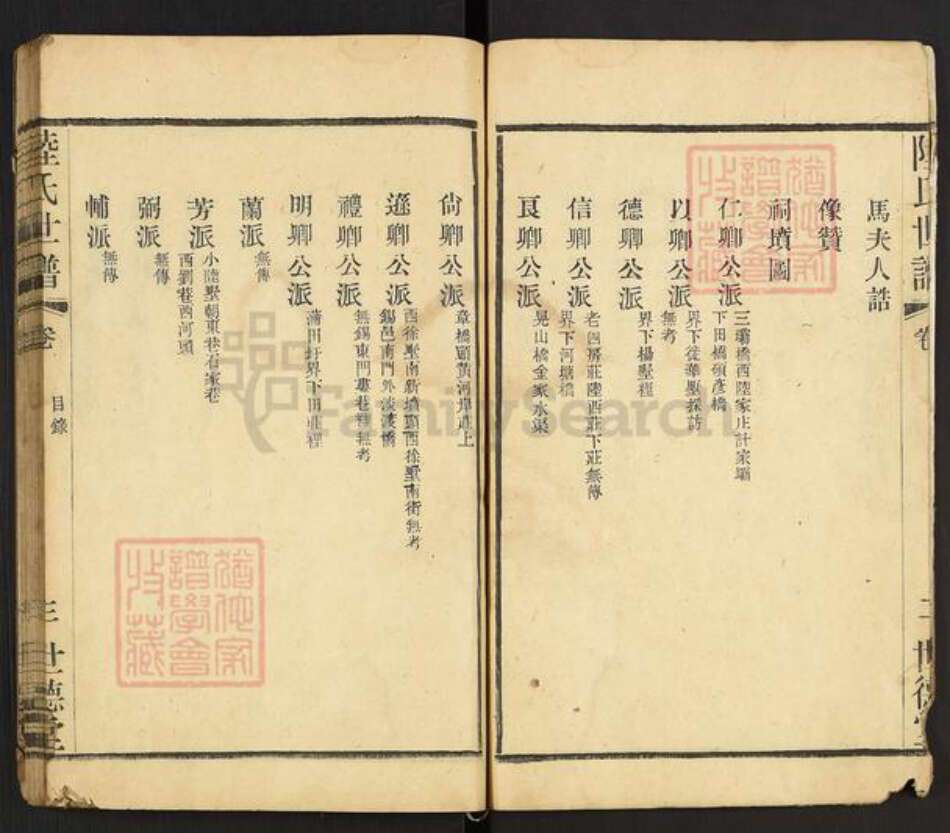 陸氏世譜
卷
二
世德堂
馬夫人誥
像贊
祠墳圖
仁卿公派
三壩橋西陸家庄計家壩
下田橋碩彥橋
以卿公派
界下徒華墅採訪
無考
德卿公派
界下楊墅裡
信卿公派
老四房莊陸西莊下莊無傳
界下河塘橋
良卿公派
晃山橋金家水渠
尙卿公派
章橋頭黃河岸莊上
遜卿公派
西徐墅南新墳頭西徐墅南街無考
錫邑南門外淡渡橋
禮卿公派
無錫東門婁巷裡無考
明卿公派
蒲田圩界下田莊裡
蘭派
無傳
芳派
小陸墅朝東巷石家巷
西劉巷西河頭
弼派
無傳
輔派
無傳
陸氏世譜
卷
目錄
三
世德堂
猶他家譜學會收藏
猶他家譜學會收藏
FamilySearch